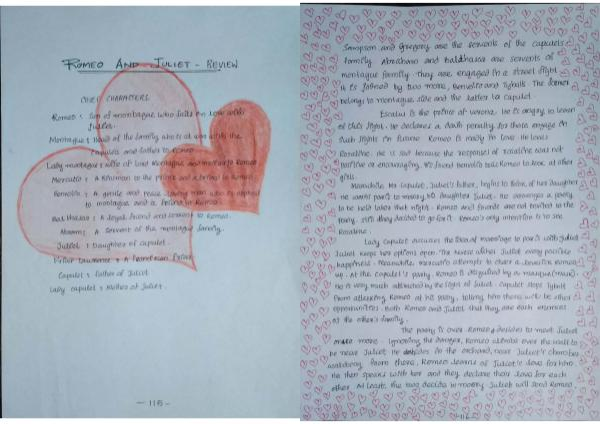 ROMEO AND JULIET - REVIEW
CHIEF CHARACTERS
Romeo : Son of montague who falls in love with
Juliet.
Montague : Head of the family who is at war with the
Capulets and father to Romeo
Lady montague : wife of lord Montague and mother to Romeo
Mercutio : A kinsman to the prince and a friend to Romeo.
Benvolio : A gentle and peace loving man who is
to montague, and a friend to Romeo.
Balthasar : A loyal friend and servant to Romeo.
Abram : A servant of the montague family.
Juliet : Daughter of capulet.
Friar Lawrence : A Franciscan Friar
Capulet : Father of Juliet
Lady capulet : Mother of Juliet.
- 115 -
Sampson and Gregory are the servants of the capulets
family. Abraham and Balthasar are servants of
montague family. They are engaged in a street fight
It is joined by two more, Benvolio and Tybalt. The former
belongs to montague side and the latter to capulet.
Escalus is the prince of verona. He is angry to learn
of this fight. He declares a death penalty for those engage in
such fights in future. Romeo is madly in love. He loves
Rosaline. He is sad because the response of rosaline was not
positive or encouraging. His friend benvolio tells Romeo to look at other
girls.
Meanwhile Mr Capulet, Juliet's father, begins to think of her daughter
He want paris to marry his daughter Juliet. He arranges a party
to be held that night. Romeo and friends are not invited to the
party. Still they decided to go for it. Romeo's only intention is to see
Rosaline.
Lady Capulet discusses the idea of marriage to paris with Juliet
Juliet keeps her options open. The nurse wishes Juliet every possible
happiness. Meanwhile, Mercutio attempts to cheer a lovesick Romeo
up. At the Capulet's party, Romeo is disguised by a masque (mask).
He is very much attracted by the sight of Juliet. Capulet stops Tybalt
from attacking Romeo at his party, telling him there will be other
opportunities. Both Romeo and Juliet that they are each enemies
of the other's family.
The party is over. Romeo decides to meet Juliet
once more. Ignoring the danger, Romeo climbs over the wall to
be near Juliet. He hides in the orchard, near Juliet's chamber
watching from there. Romeo learns of Juliet's love for him
He then speaks with her and they declare their love for each
other. At last, the two decide to marry. Juliet will send Romeo